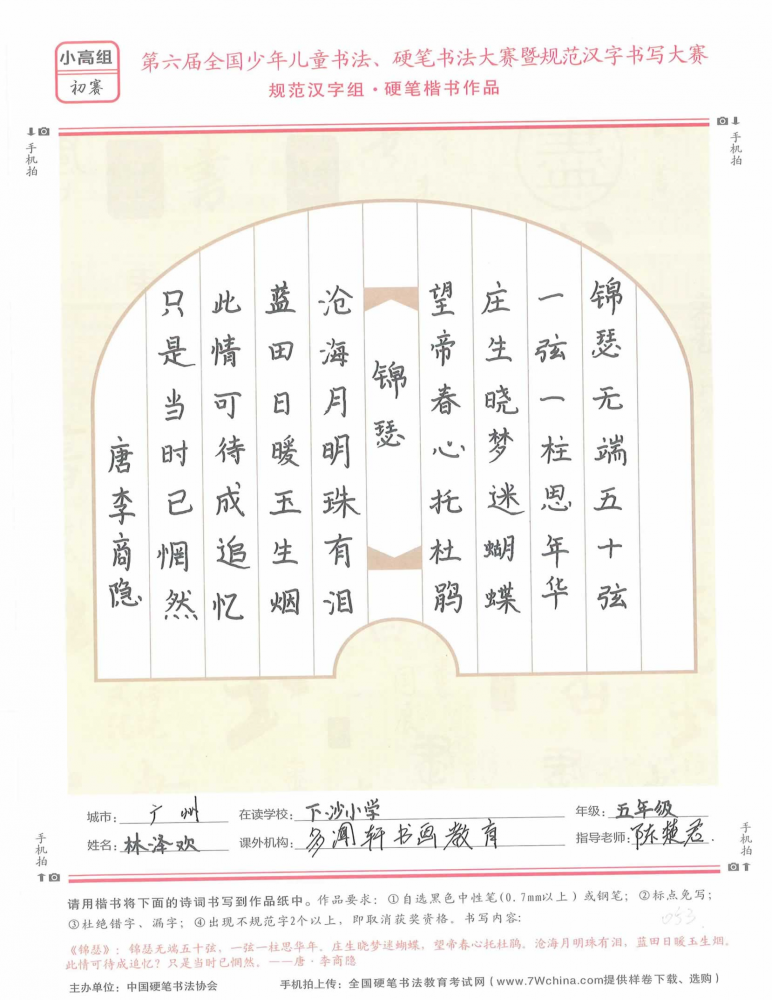 小高组
初赛
第六届全国少年儿童书法、硬笔书法大赛暨规范汉字书写大赛
规范汉字组·硬笔楷书作品
手机拍
手机拍
锦瑟无端五十弦
一弦一柱思年华
庄生晓梦迷蝴蝶
望帝春心托杜鹃
锦瑟
沧海月明珠有泪
蓝田日暖玉生烟
此情可待成追忆
只是当时已惘然
唐李商隐
城市: 广州 在读学校: 下沙小学 年级: 五年级
姓名: 林泽欢 课外机构: 多闻轩书画教育 指导老师: 陈楚君.
手机拍
手机拍
请用楷书将下面的诗词书写到作品纸中。作品要求:①自选黑色中性笔(0.7mm以上)或钢笔;②标点免写;
③杜绝错字、漏字;④出现不规范字2个以上,即取消获奖资格。书写内容:
053
《锦瑟》:锦瑟无端五十弦,一弦一柱思华年。庄生晓梦迷蝴蝶,望帝春心托杜鹃。沧海月明珠有泪,蓝田日暖玉生烟。
此情可待成追忆?只是当时已惘然。——唐·李商隐
主办单位:中国硬笔书法协会 手机拍上传:全国硬笔书法教育考试网(www.7Wchina.com提供样卷下载、选购)